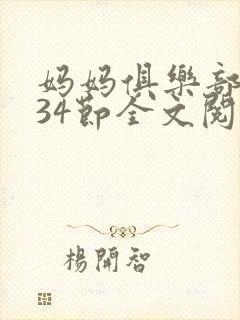 妈妈俱樂部
34節全文閱
楊開智